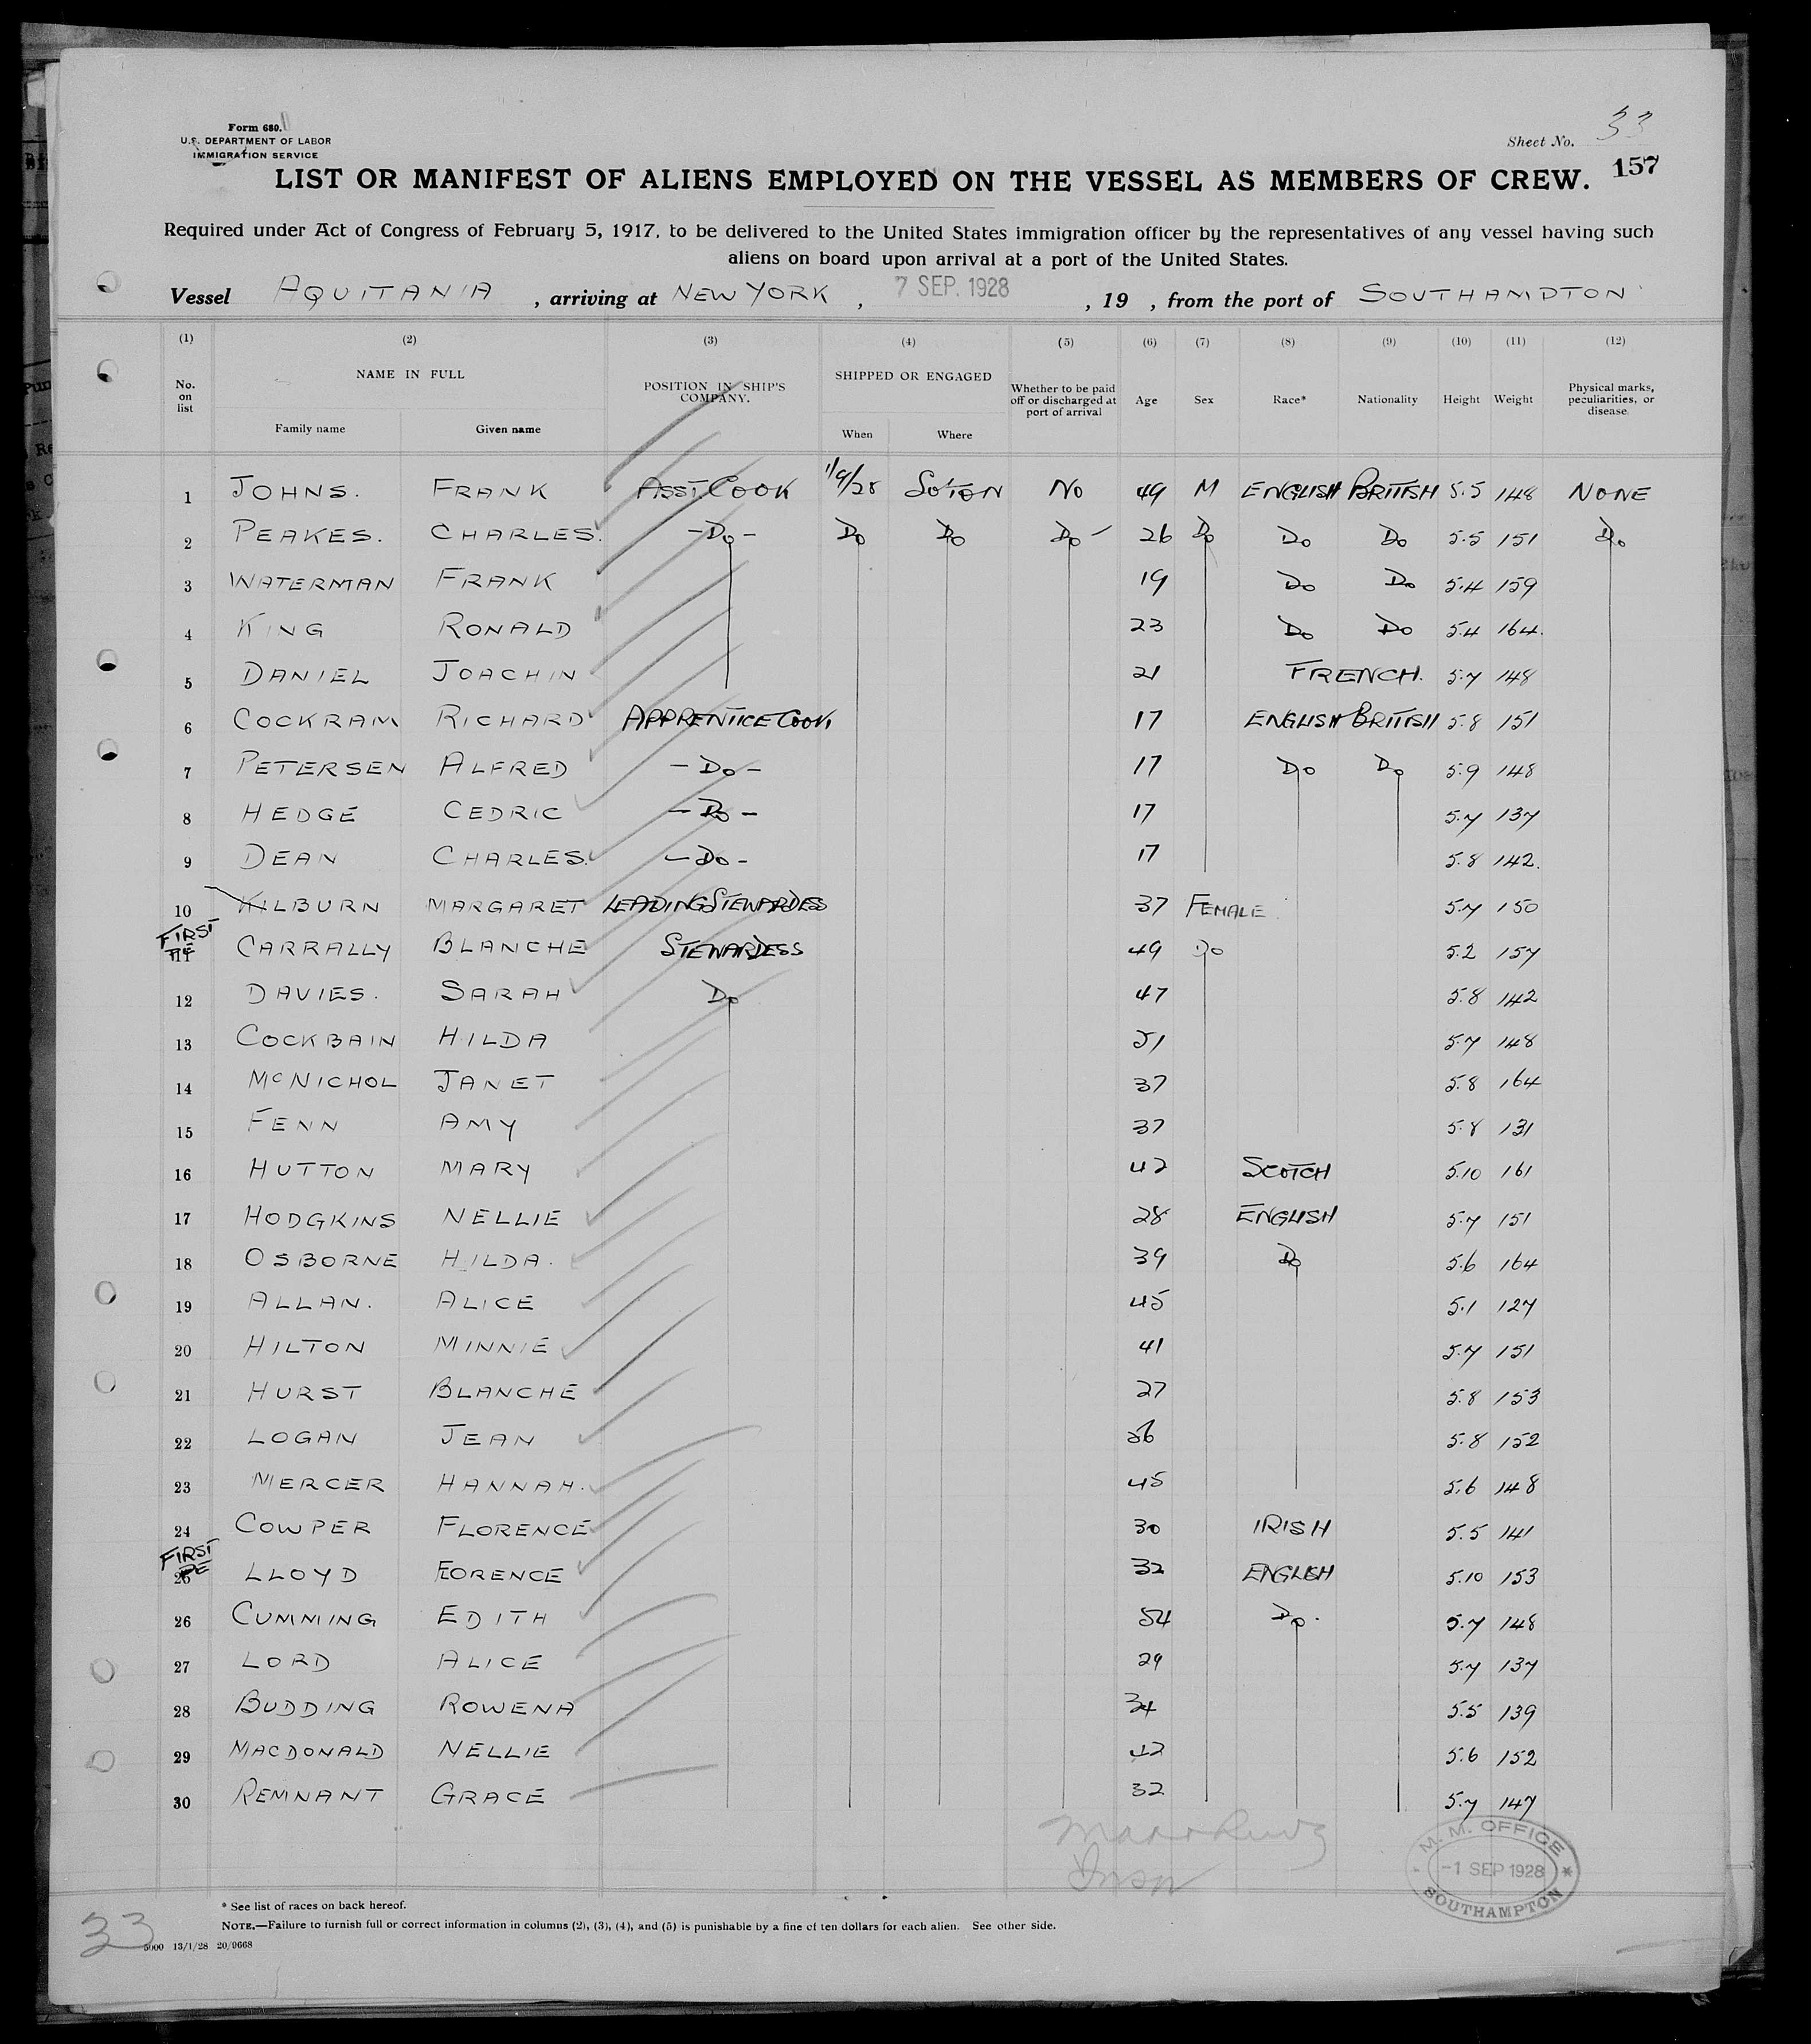 Form 680.
U.S. DEPARTMENT OF LABOR
IMMIGRATION SERVICE
Sheet No. 33
157
LIST OR MANIFEST OF ALIENS EMPLOYED ON THE VESSEL AS MEMBERS OF CREW.
Required under Act of Congress of February 5, 1917, to be delivered to the United States immigration officer by the representatives of any vessel having such
aliens on board upon arrival at a port of the United States.
Vessel AQUITANIA , arriving at NEW YORK , 7 SEP. 1928 , 19 , from the port of SOUTHAMPTON
(1) (2) (3) (4) (5) (6) (7) (8) (9) (10) (11) (12)
No. on list NAME IN FULL Family name Given name POSITION IN SHIP'S COMPANY. SHIPPED OR ENGAGED When Where Whether to be paid off or discharged at port of arrival Age Sex Race* Nationality Height Weight Physical marks, peculiarities, or disease.
1 JOHNS. FRANK ASST. COOK 1/9/28 SOTON NO 49 M ENGLISH BRITISH 5.5 148 NONE
2 PEAKES. CHARLES. -Do- Do Do Do- 26 Do Do Do 5.5 151 Do
3 WATERMAN FRANK 19 Do Do 5.4 159
4 KING RONALD 23 Do Do 5.4 164.
5 DANIEL JOACHIN 21 FRENCH. 5.7 148
6 COCKRAM RICHARD APPRENTICE COOK 17 ENGLISH BRITISH 5.8 151
7 PETERSEN ALFRED -Do- 17 Do Do 5.9 148
8 HEDGE CEDRIC -Do- 17 5.7 137
9 DEAN CHARLES. -Do- 17 5.8 142.
10 KILBURN MARGARET LEADING STEWARDESS 37 FEMALE 5.7 150
FIRST PE 11 CARRALLY BLANCHE STEWARDESS 49 Do 5.2 157
12 DAVIES. SARAH Do 47 5.8 142
13 COCKBAIN HILDA 51 5.7 148
14 McNICHOL JANET 37 5.8 164
15 FENN AMY 37 5.8 131
16 HUTTON MARY 42 SCOTCH 5.10 161
17 HODGKINS NELLIE 28 ENGLISH 5.7 151
18 OSBORNE HILDA. 39 Do 5.6 164
19 ALLAN. ALICE 45 5.1 127
20 HILTON MINNIE 41 5.7 151
21 HURST BLANCHE 27 5.8 153
22 LOGAN JEAN 5.8 152
23 MERCER HANNAH. 45 5.6 148
24 COWPER FLORENCE 30 IRISH 5.5 141
FIRST PE 25 LLOYD FLORENCE 32 ENGLISH 5.10 153
26 CUMMING EDITH 54 Do. 5.7 148
27 LORD ALICE 29 5.7 137
28 BUDDING ROWENA 34 5.5 139
29 MACDONALD NELLIE 42 5.6 152
30 REMNANT GRACE 32 5.7 147
M. M. OFFICE
-1 SEP 1928
SOUTHAMPTON
* See list of races on back hereof.
NOTE.—Failure to turnish full or correct information in columns (2), (3), (4), and (5) is punishable by a fine of ten dollars for each alien. See other side.
33
5000 13/1/28 20/9668